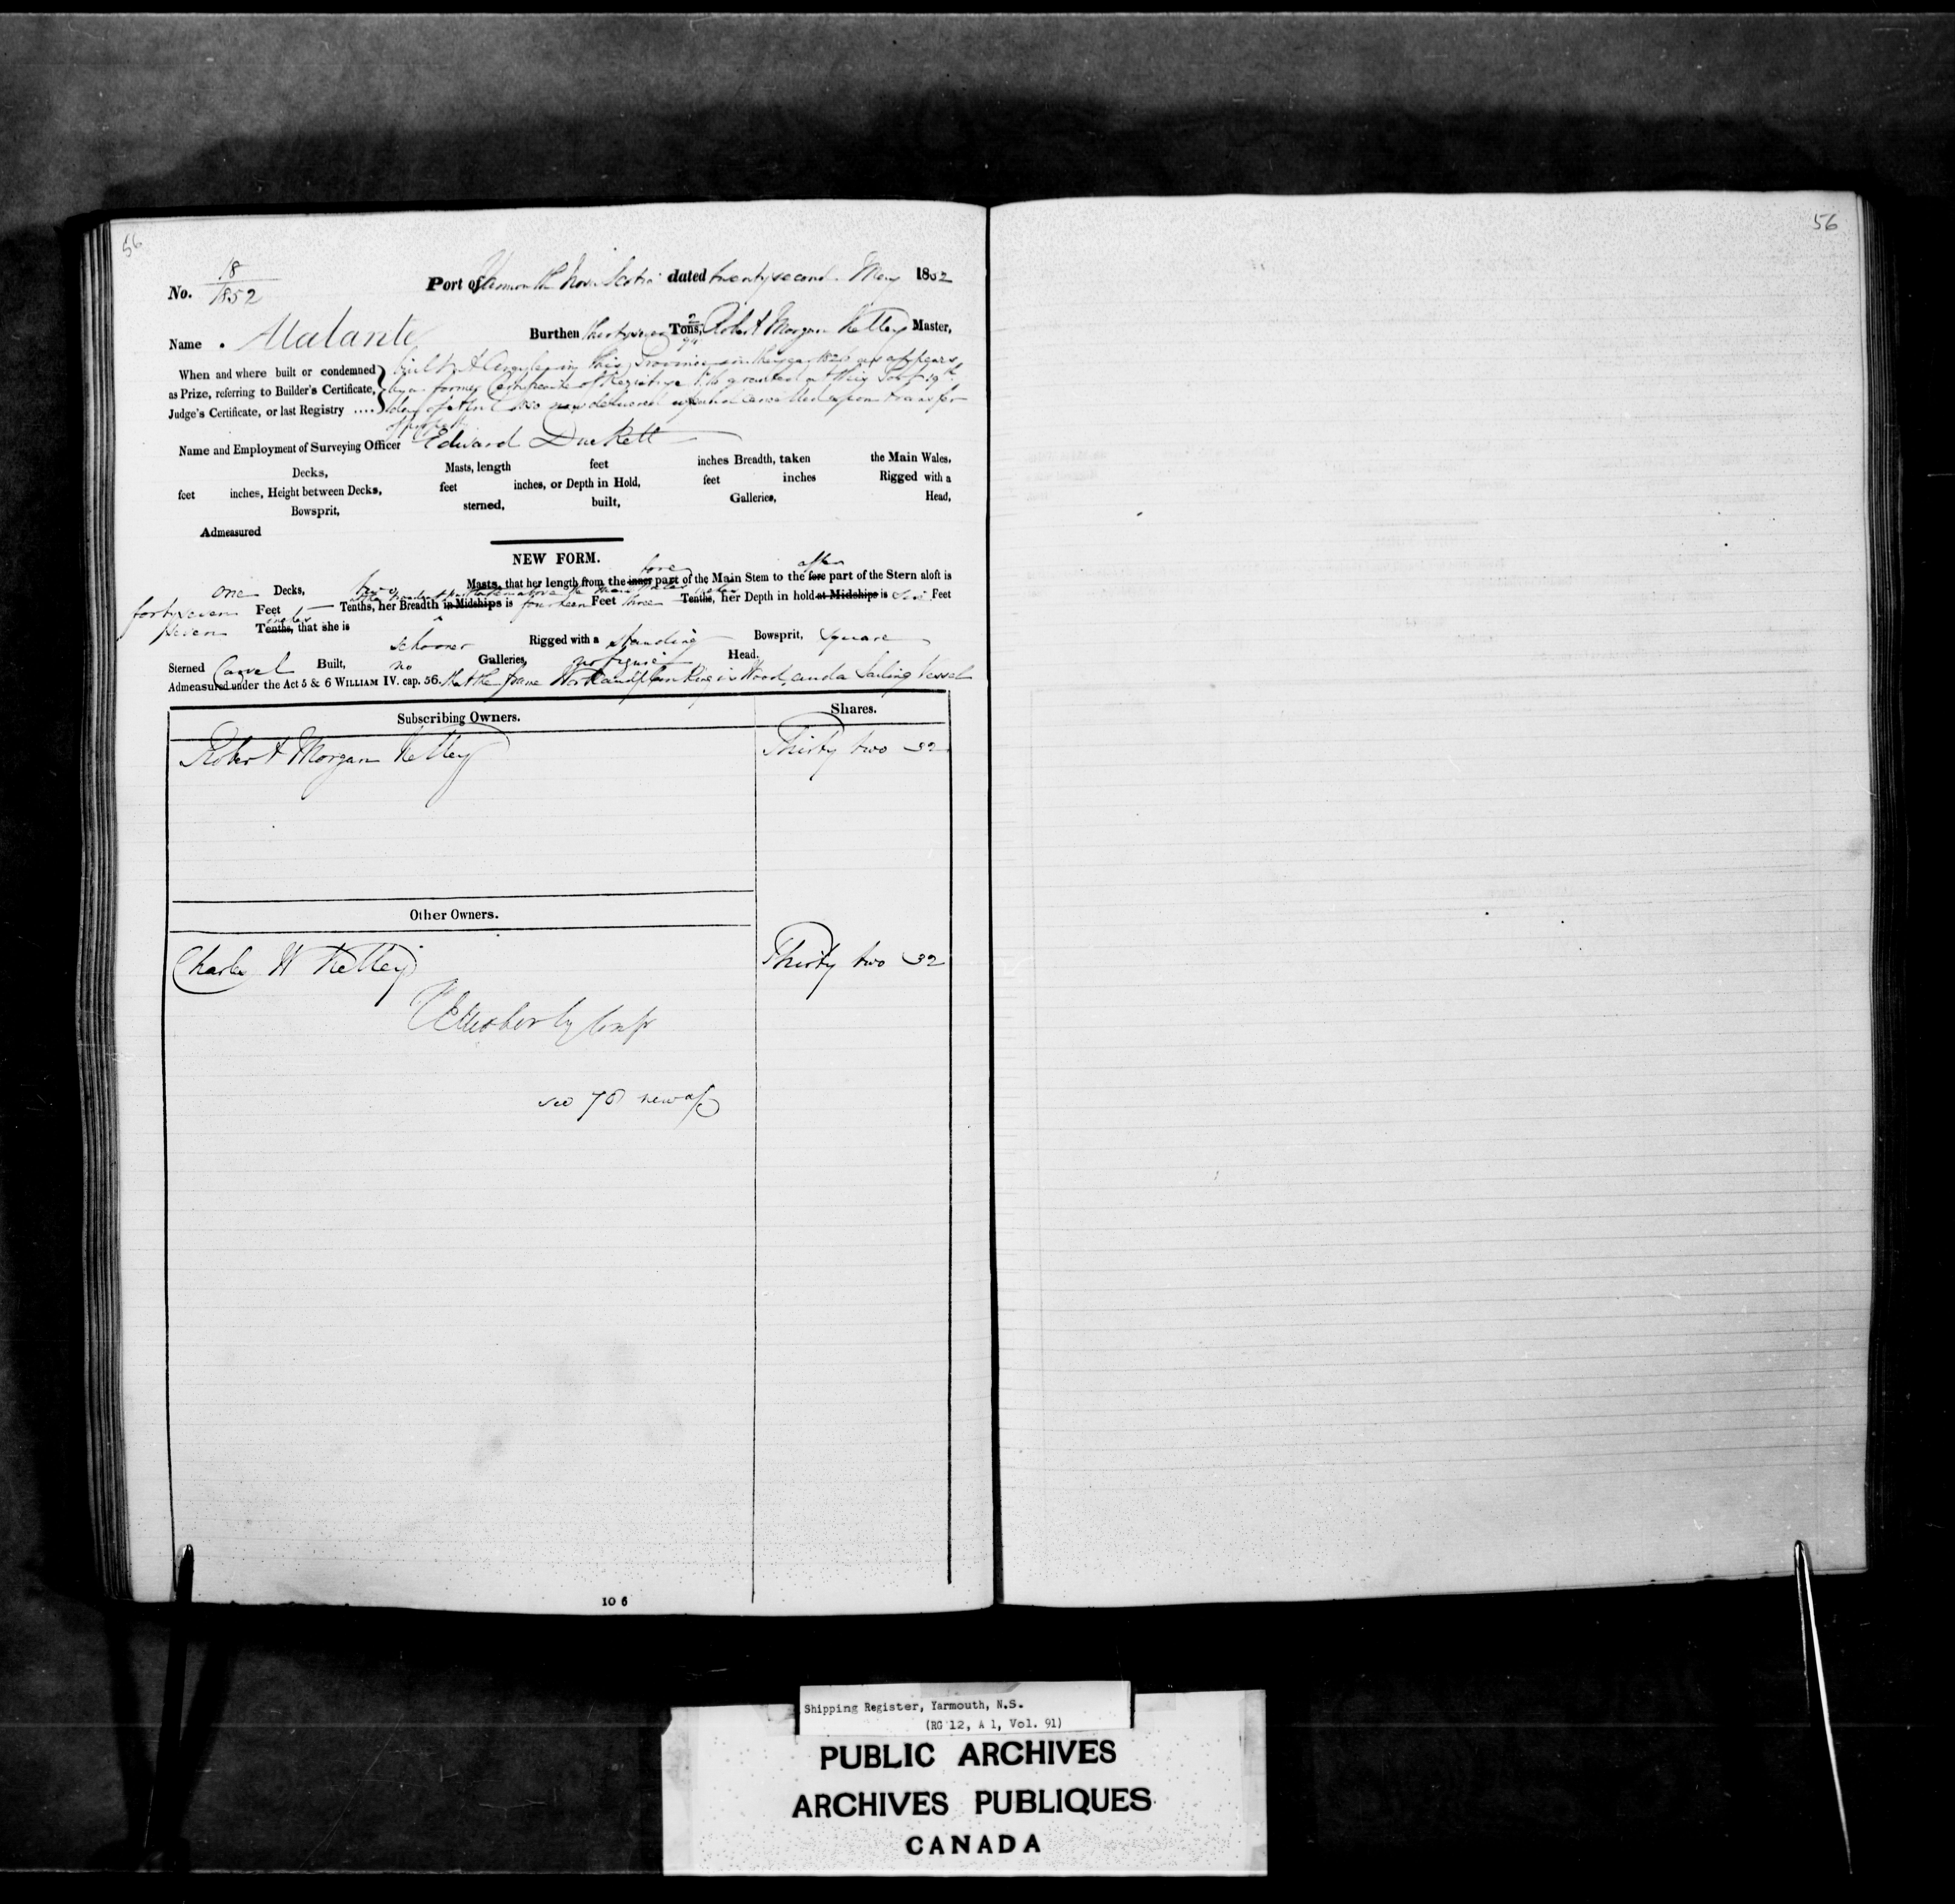 56
56
No. 18/1852 Port of Yarmouth Nova Scotia dated twenty second May 1852
Name . Atalante Burthen thirty seven 2/94 Tons, Robert Morgan Kelley Master,
When and where built or condemned
as Prize, referring to Builder's Certificate,
Judge's Certificate, or last Registry ....
built at Argyle in this Province in the year 1826 as appears
by a former Certificate of Registry granted at this Port 19th
day of April now delivered up and cancelled upon transfer
of property
Name and Employment of Surveying Officer Edward Duckett
Decks, Masts, length feet inches Breadth, taken the Main Wales,
feet inches, Height between Decks, feet inches, or Depth in Hold, feet inches Rigged with a
Bowsprit, sterned, built, Galleries, Head,
Admeasured
NEW FORM.
fore after
one Decks, two Masts, that her length from the inner part of the Main Stem to the fore part of the Stern aloft is
forty seven Feet — Tenths, her Breadth in Midships is fourteen Feet three Tenths, her Depth in hold at Midships is six Feet
seven inches Tenths, that she is
schooner Rigged with a standing Bowsprit, square
Sterned Carvel Built, no Galleries, no figure Head.
Admeasured under the Act 5 & 6 WILLIAM IV. cap. 56. that the frame Work and planking is Wood, and a Sailing Vessel
Subscribing Owners. Shares.
Robert Morgan Kelley Thirty two 32
Other Owners.
Charles W Kelley Thirty two 32
see 70 new
10 6
Shipping Register, Yarmouth, N.S.
(RG 12, A 1, Vol. 91)
PUBLIC ARCHIVES
ARCHIVES PUBLIQUES
CANADA